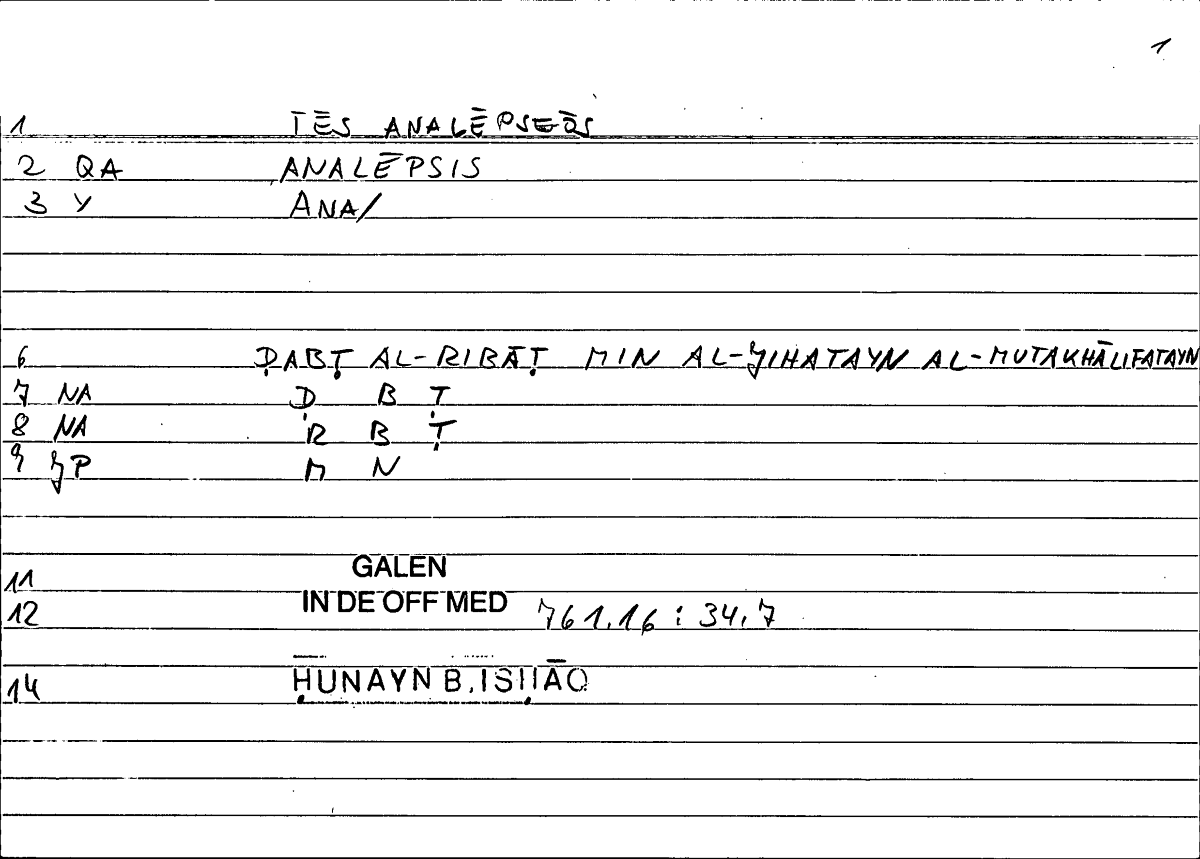 1
1 TĒS ANALĒPSEŌS
2 QA ANALĒPSIS
3 Y ANA/
6 ḌABṬ AL-RIBĀṬ MIN AL-JIHATAYN AL-MUTAKHĀLIFATAYN
7 NA Ḍ B Ṭ
8 NA R B Ṭ
9 JP M N
11 GALEN
12 IN DE OFF MED 761.16 : 34.7
14 ḤUNAYN B. ISḤĀQ